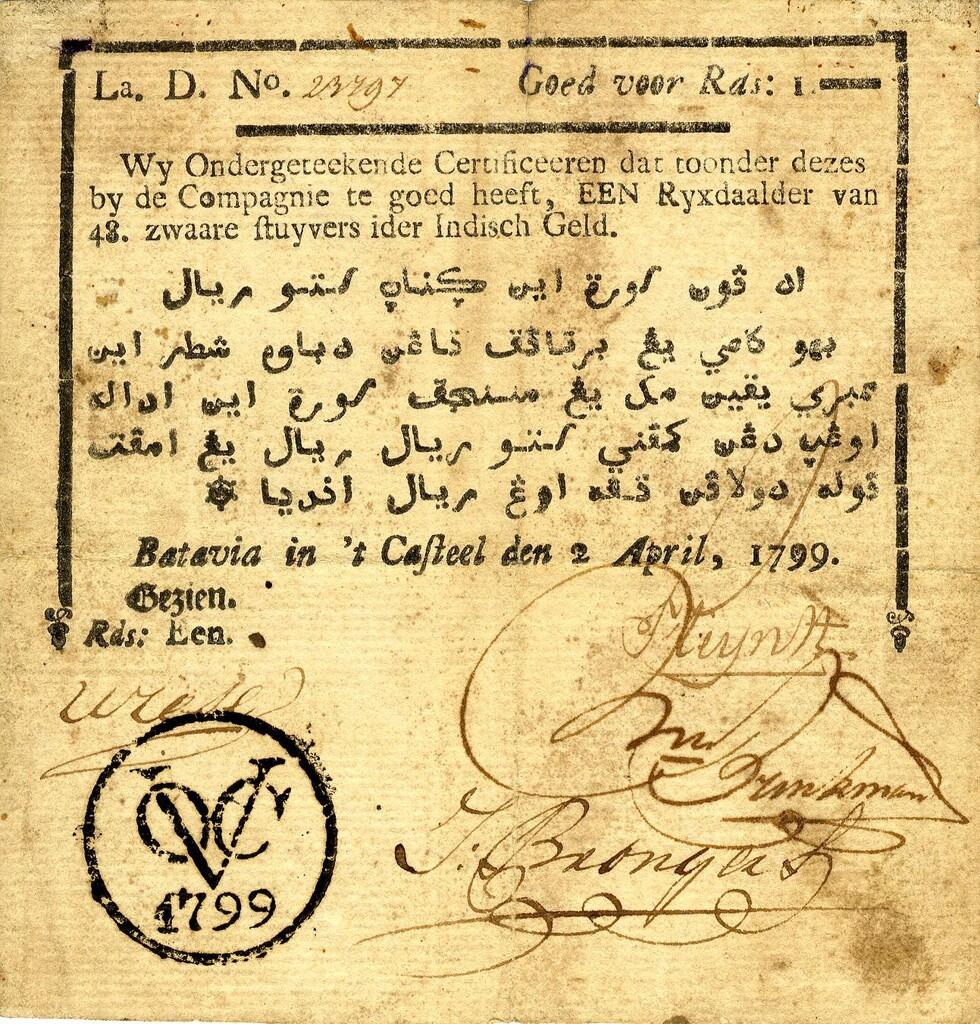 La. D. No. 23797 Goed voor Rds: 1.
Wy Ondergeteekende Certificeeren dat toonder dezes
by de Compagnie te goed heeft, EEN Ryxdaalder van
48. zwaare ſtuyvers ider Indisch Geld.
اد ڤون سورة اين ستو ريال
بهو كامي يڠ برتاڤق تاڠن دباوه شطر اين
ممبري يقين مك يڠ سورة اين اداله
اوڠ دڠن ستو ريال ريال يڠ امڤت
ڤوله دولاڤن اوڠ ريال انديا
Batavia in 't Caſteel den 2 April, 1799.
Gezien.
Rds: Een.
VOC
1799